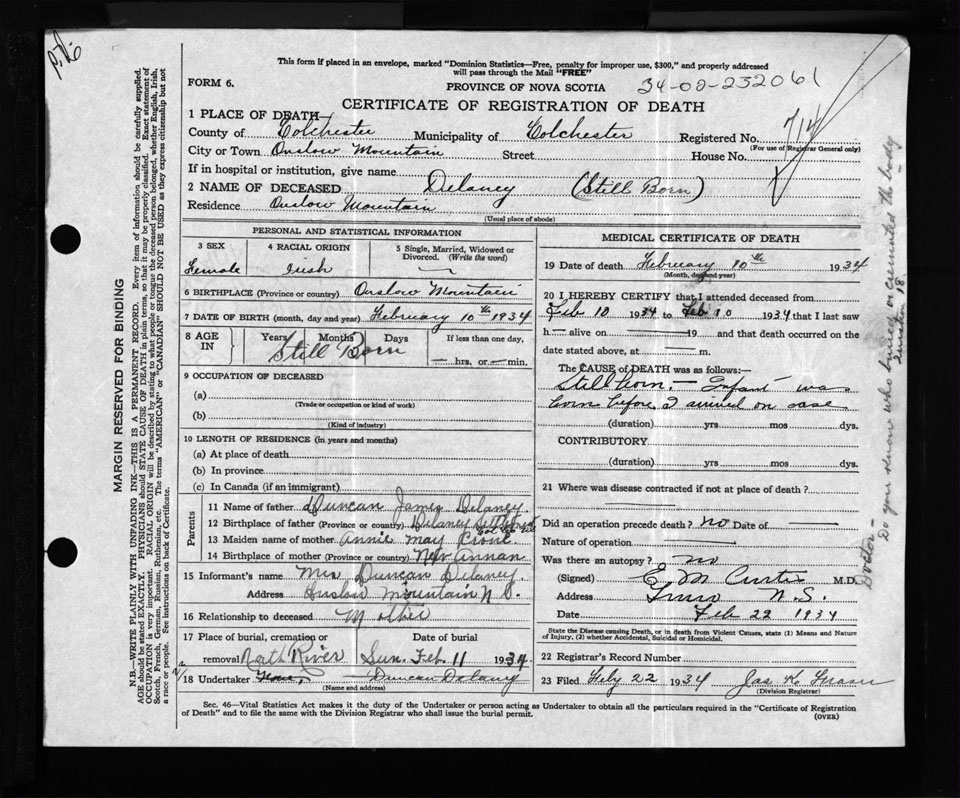 This form if placed in an envelope, marked "Dominion Statistics—Free, penalty for improper use, $300," and properly addressed
will pass through the Mail "FREE"
FORM 6.
PROVINCE OF NOVA SCOTIA
34-00-232061
CERTIFICATE OF REGISTRATION OF DEATH
1 PLACE OF DEATH
County of Colchester Municipality of Colchester Registered No.
(For use of Registrar General only)
City or Town Onslow Mountain Street House No.
If in hospital or institution, give name
2 NAME OF DECEASED Delaney (Still Born)
Residence Onslow Mountain
(Usual place of abode)
PERSONAL AND STATISTICAL INFORMATION
3 SEX
Female
4 RACIAL ORIGIN
Irish
5 Single, Married, Widowed or
Divorced. (Write the word)
6 BIRTHPLACE (Province or country) Onslow Mountain
7 DATE OF BIRTH (month, day and year) February 10th 1934
8 AGE IN
Years Months Days
Still Born
If less than one day,
— hrs. or — min.
9 OCCUPATION OF DECEASED
(a)
(Trade or occupation or kind of work)
(b)
(Kind of industry)
10 LENGTH OF RESIDENCE (in years and months)
(a) At place of death
(b) In province
(c) In Canada (if an immigrant)
Parents
11 Name of father Duncan James Delaney.
12 Birthplace of father (Province or country) Delaney Settlement
13 Maiden name of mother Annie May
14 Birthplace of mother (Province or country) New Annan
15 Informant's name Mrs Duncan Delaney.
Address Onslow Mountain N S.
16 Relationship to deceased Mother
17 Place of burial, cremation or
removal North River
Date of burial
Sun. Feb. 11 1934
18 Undertaker Duncan Delaney
(Name and address)
MEDICAL CERTIFICATE OF DEATH
19 Date of death February 10th 1934
(Month, day and year)
20 I HEREBY CERTIFY that I attended deceased from
Feb 10 1934 to Feb 10 1934 that I last saw
h— alive on 19 and that death occurred on the
date stated above, at — m.
The CAUSE of DEATH was as follows:—
Stillborn. — Infant was
born before I arrived on case
(duration) yrs mos dys.
CONTRIBUTORY
(duration) yrs mos dys.
21 Where was disease contracted if not at place of death?
Did an operation precede death? no Date of —
Nature of operation —
Was there an autopsy? no
(Signed) E M Curtis M.D.
Address Truro N.S.
Date Feb 22 1934
State the Disease causing Death, or in death from Violent Causes, state (1) Means and Nature
of Injury, (2) whether Accidental, Suicidal or Homicidal.
22 Registrar's Record Number
23 Filed Feby 22 1934 Jas K Fraser
(Division Registrar)
Sec. 46—Vital Statistics Act makes it the duty of the Undertaker or person acting as Undertaker to obtain all the particulars required in the "Certificate of Registration
of Death" and to file the same with the Division Registrar who shall issue the burial permit.
(OVER)
MARGIN RESERVED FOR BINDING
N.B.—WRITE PLAINLY WITH UNFADING INK—THIS IS A PERMANENT RECORD. Every item of information should be carefully supplied.
AGE should be stated EXACTLY. PHYSICIANS should STATE CAUSE OF DEATH in plain terms, so that it may be properly classified. Exact statement of
OCCUPATION is very important. RACIAL ORIGIN will be described by stating to what people or tongue the deceased person belonged, whether English, Irish,
Scotch, French, German, Russian, Ruthenian, etc. The terms "AMERICAN" or "CANADIAN" SHOULD NOT BE USED as they express citizenship but not
a race or people. See instructions on back of Certificate.
Doctor— Do you know who buried or cremated the body
Question 18